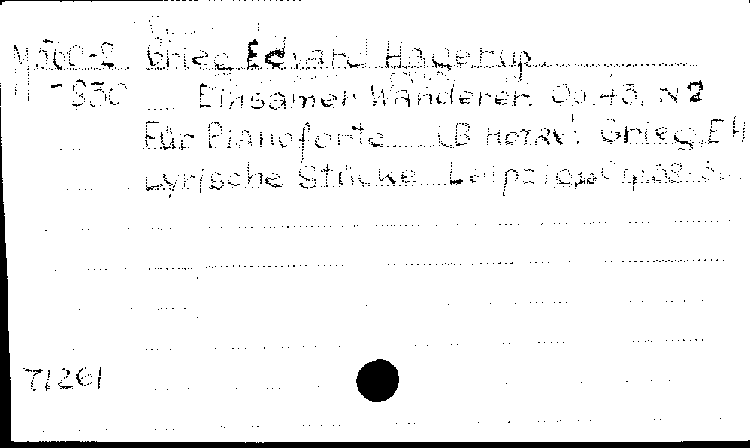 Grieg Edvard Hagerup.
Einsamer Wanderer. Op. 43. N 2
Für Pianoforte (В нотах: Grieg, E H
Lyrische Stücke Leipzig,
71261